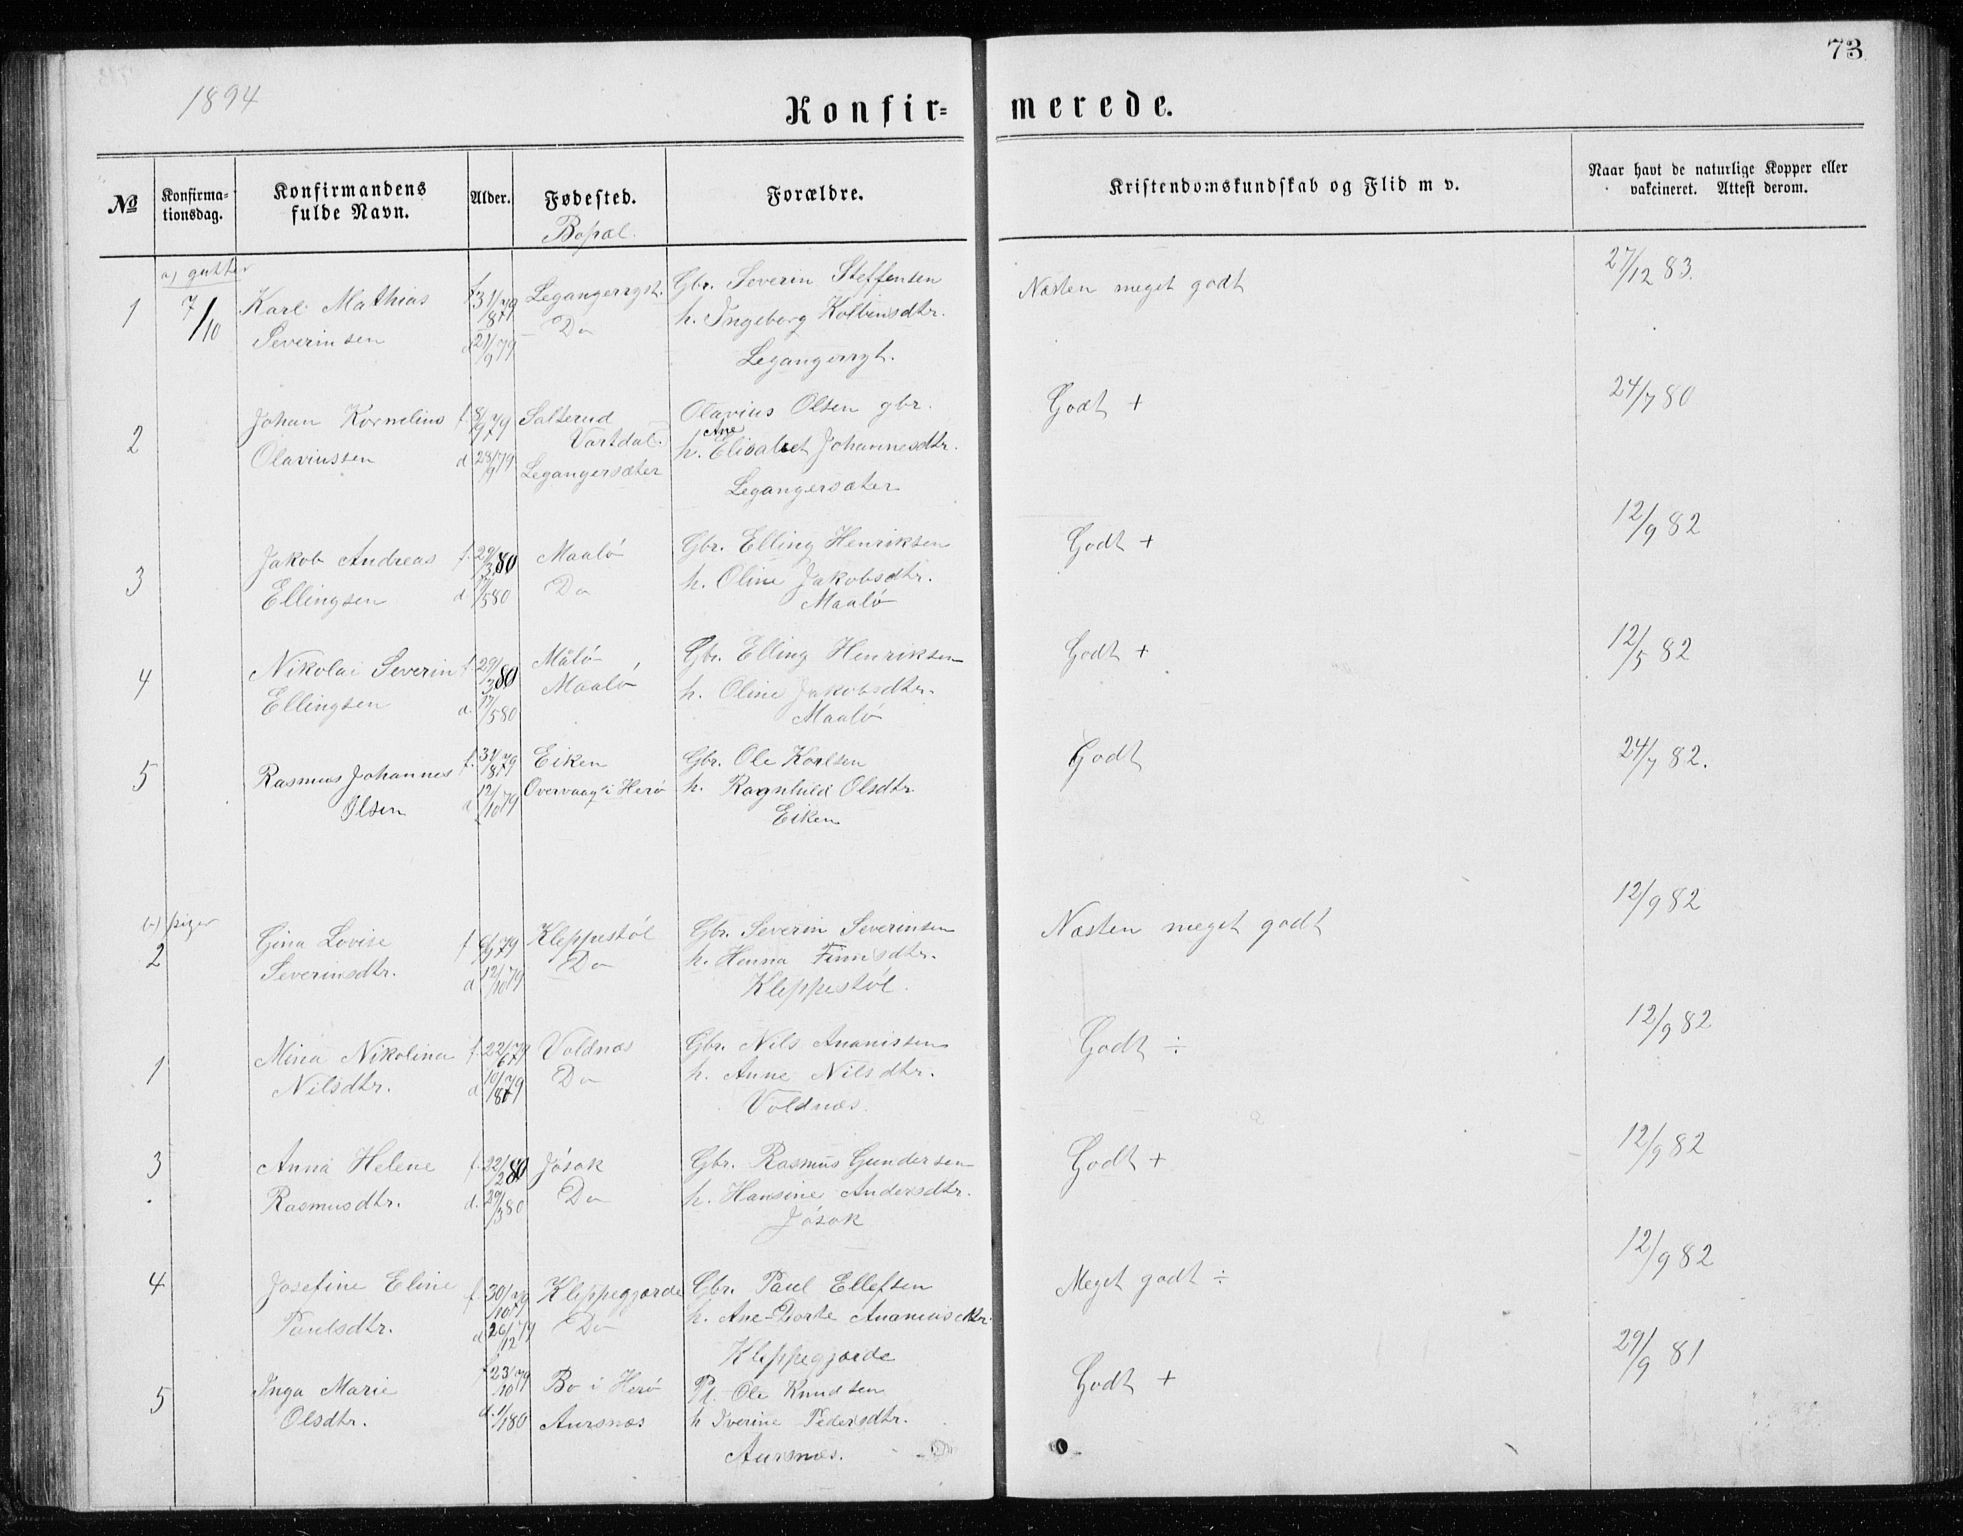 73
1894
Konfir-
merede.
№
Konfirma-
tionsdag.
Konfirmandens
fulde Navn.
Alder.
Fødested.
Bopæl.
Forældre.
Kristendomskundskab og Flid m v.
Naar havt de naturlige Kopper eller
vakcineret. Attest derom.
a) gutter
1
7/10
Karl Mathias
Severinsen
f. 31/8 79
d. 21/9 79
Do
Gbr. Severin Steffensen
h. Ingeborg
Næsten meget godt
27/12 83.
2
Johan Kornelius
Olaviussen
f. 8/9 79
d 28/9 79
Vartdal.
Legangersæter
Olavius Olsen gbr.
h. Ane Elisabet Johannesdtr.
Legangersæter
Godt +
24/7 80
3
Jakob Andreas
Ellingsen
f. 29/3 80
d 17/5 80
Maalø
Do
Gbr. Elling Henriksen
h. Oline Jakobsdtr.
Maalø
Godt +
12/9 82
4
Nikolai Severin
Ellingsen
f. 29/3 80
d. 17/5 80
Målø
Maalø
Gbr. Elling Henriksen
h. Oline Jakobsdtr.
Maalø
Godt +
12/5 82
5
Rasmus Johannes
Olsen
f. 31/8 79
d 12/10 79
Eiken
Overvaag i Herø
Gbr. Ole Karlsen
h. Ragnhild Olsdtr
Eiken
Godt
24/7 82.
piger
2
Gina Lovise
Severinsdtr.
f 6/9 79
d 12/10 79
Kleppestøl
Do
Gbr. Severin Severinsen
h. Henna Finnsdtr.
Kleppestøl.
Næsten meget godt
12/9 82
1
Mina Nikolina
Nilsdtr.
f. 22/6 79
d. 10/8 79
Voldnæs
Do
Gbr. Nils Ananissen
h. Anne Nilsdtr.
Voldnæs.
Godt ÷
12/9 82
3
Anna Helene
Rasmusdtr.
f. 22/2 80
d. 29/3 80
Jøsok
Do
Gbr. Rasmus Gundersen
h. Hansine Andersdtr.
Jøsok
Godt +
12/9 82
4
Josefine Eline
Paulsdtr.
f 30/10 79
d 26/12 79
Kleppegjærde
Do
Gbr. Paul Ellefsen
h. Ane Dorte Ananiasdtr.
Kleppegjærde
Meget godt ÷
12/9 82
5
Inga Marie
Olsdtr.
f 23/10 79
d. 1/1 80
Bo i Herø
Aursnæs
Pl. Ole Knudsen
h Iverine Pedersdtr.
Aursnæs.
Godt +
29/9 81